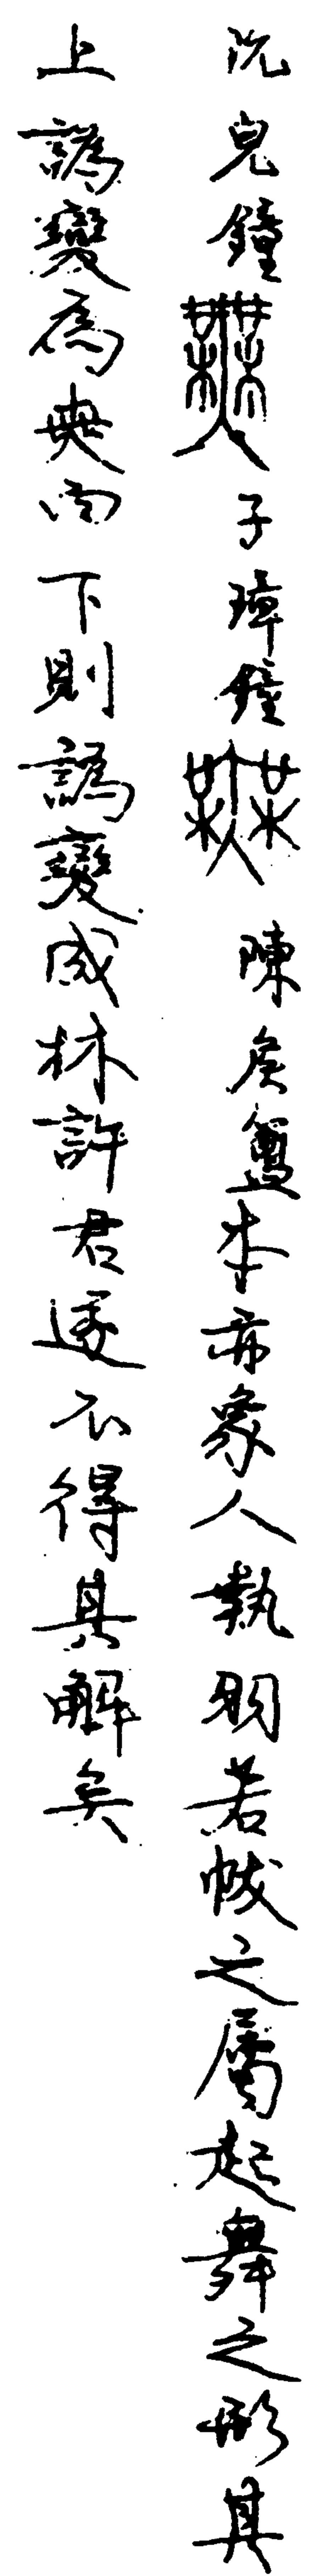 沇兒鐘 子璋鐘 陳矦簠本亦象人執羽若帗之屬起舞之形其
上譌變為與內下則譌變成林許君遂不得其解矣